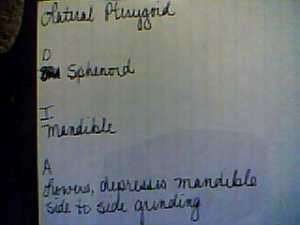 Lateral Pterygoid
O
Sphenoid
I.
Mandible
A
Lowers, depresses mandible
side to side grinding